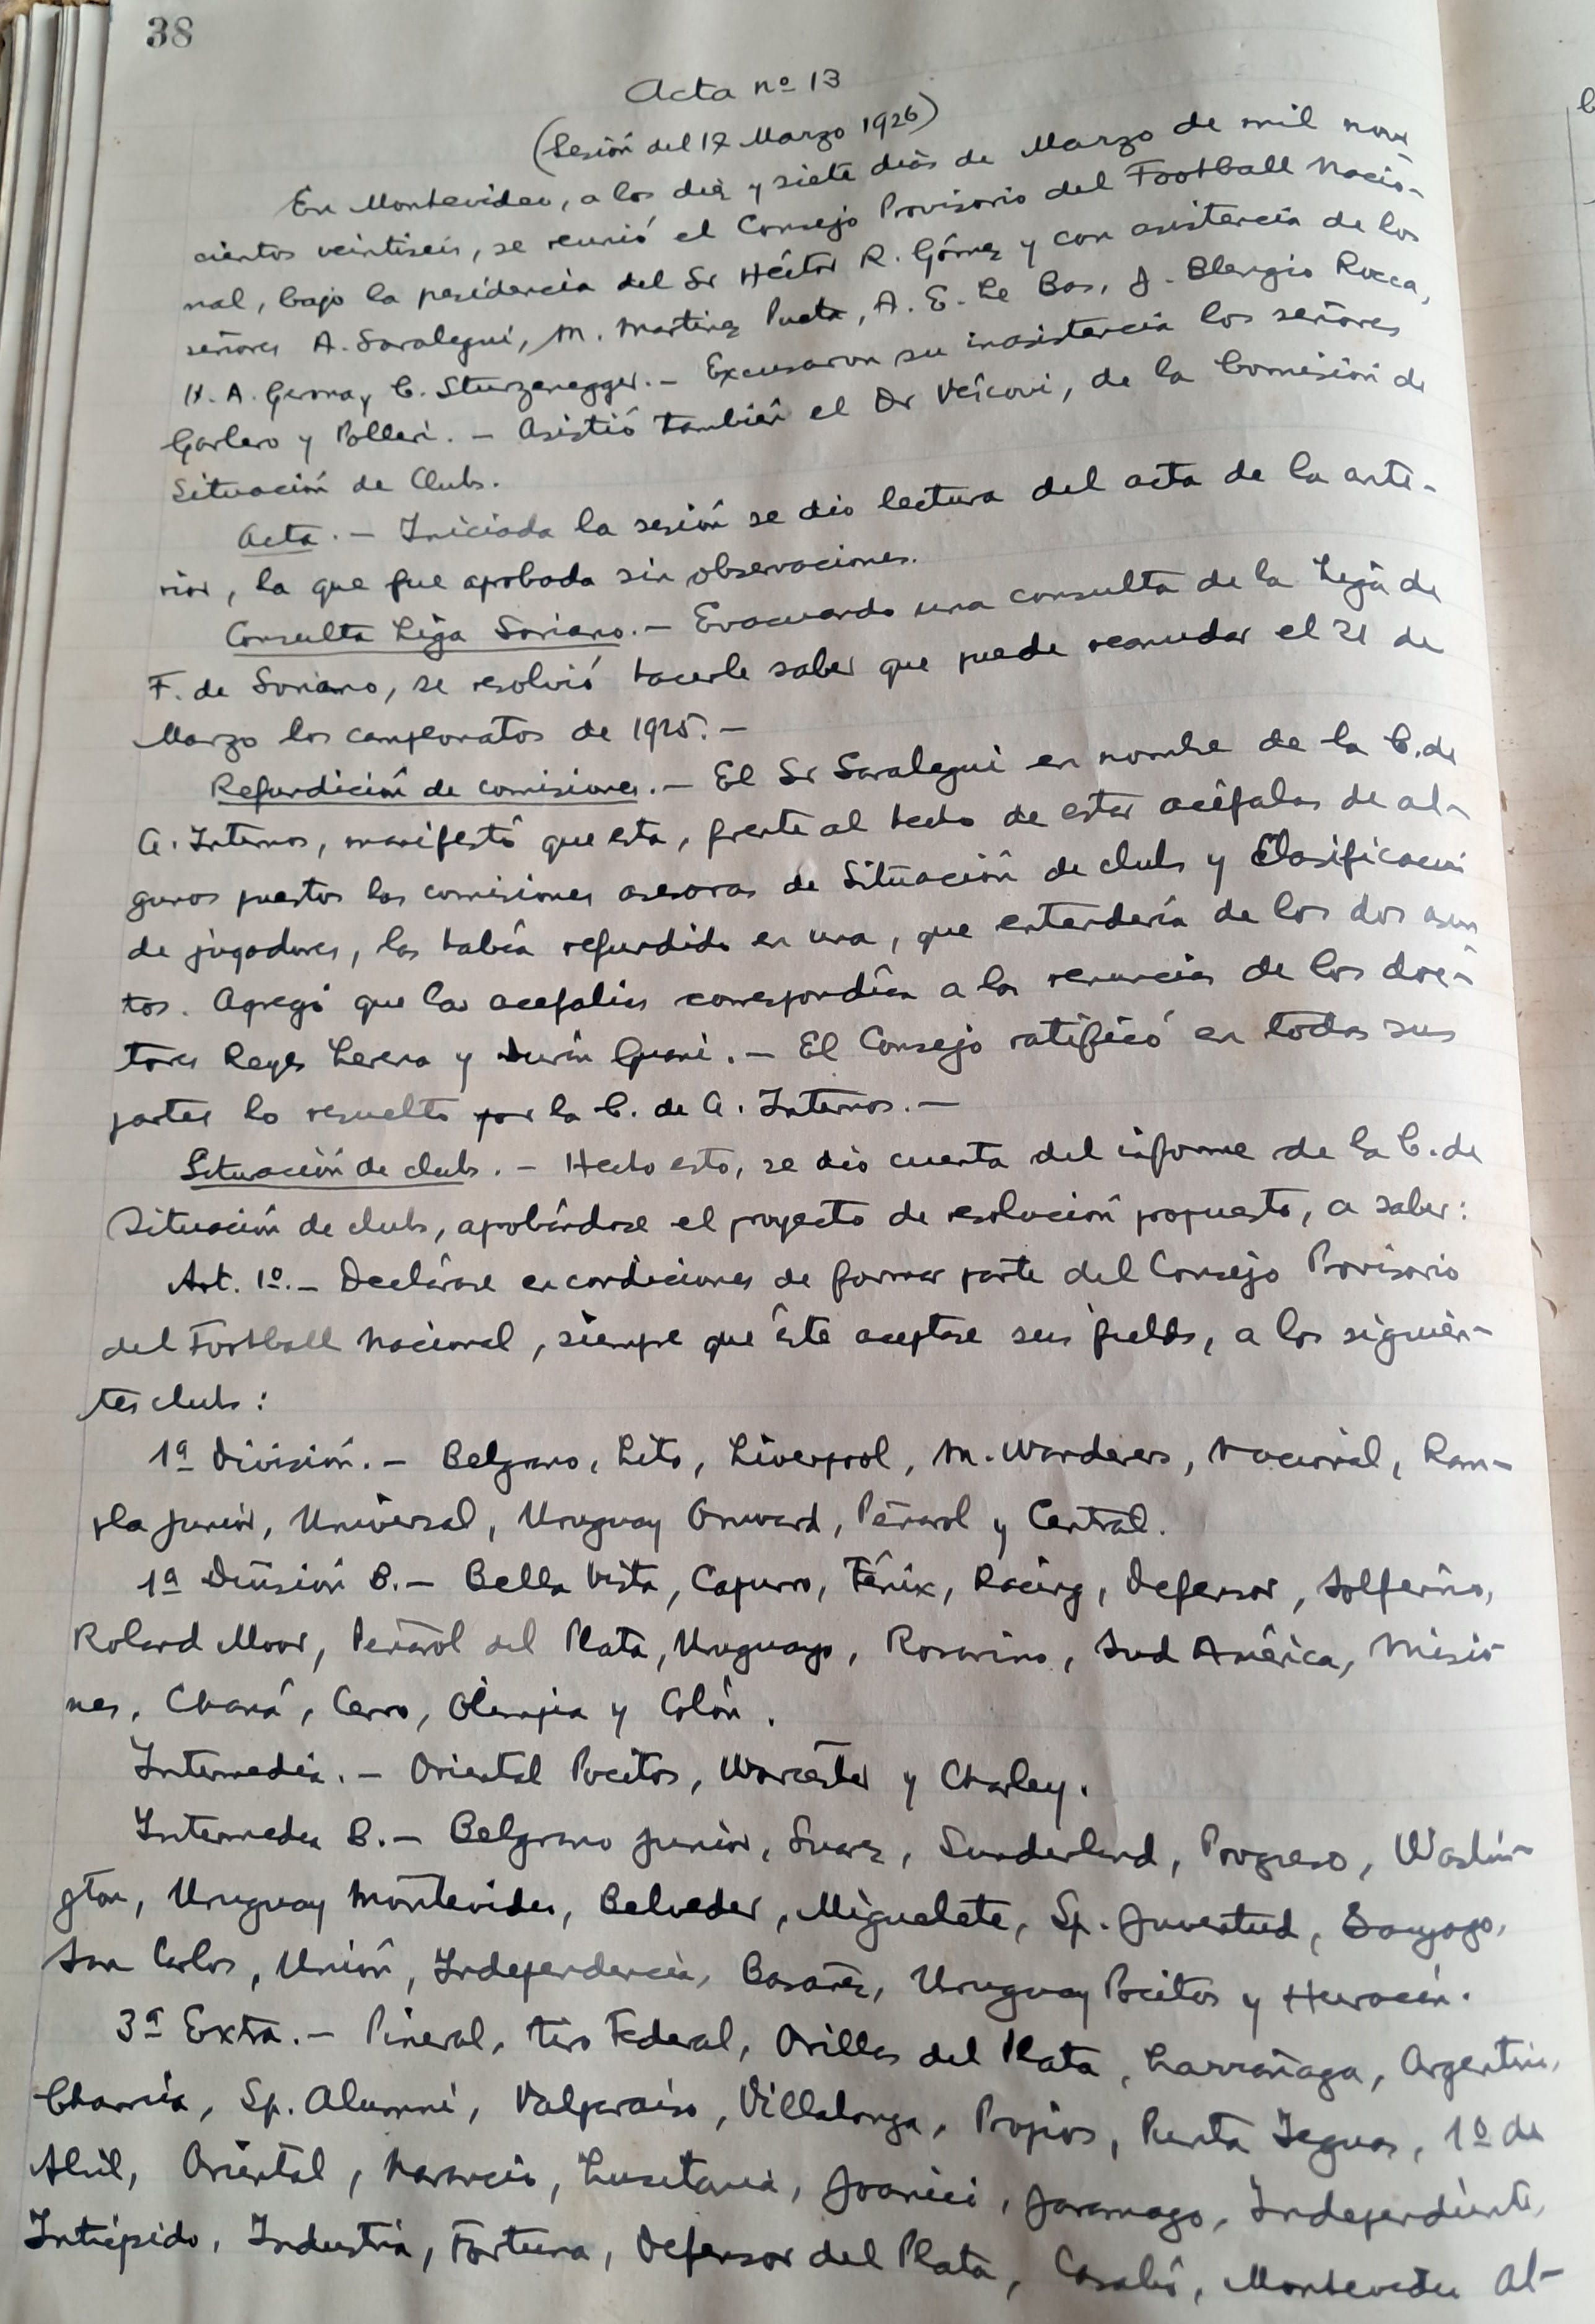 38
Acta nº 13
(Sesión del 17 Marzo 1926)
En Montevideo, a los diez y siete días de Marzo de mil nove
cientos veintiseis, se reunió el Consejo Provisorio del Football Nacio-
nal, bajo la presidencia del Sr Héctor R. Gómez y con asistencia de los
señores A. Saralegui, M. Martinez Pueta, A. E. Le Bas, J. Blengio Rocca,
H. A. Gerona y C. Sturzenegger. - Excusaron su inasistencia los señores
Garlero y Polleri. - Asistió también el Dr Veícovi, de la Comisión de
Situación de Clubs.
Acta. - Iniciada la sesión se dio lectura del acta de la ante-
rior, la que fue aprobada sin observaciones.
Consulta Liga Soriano. - Evacuando una consulta de la Liga de
F. de Soriano, se resolvió hacerle saber que puede reanudar el 21 de
Marzo los campeonatos de 1925. -
Refundición de comisiones. - El Sr Saralegui en nombre de la C. de
A. Internos, manifestó que esta, frente al hecho de estar acéfalas de al-
gunos puestos las comisiones asesoras de Situación de clubs y Clasificación
de jugadores, las había refundido en una, que entendería de los dos asun
tos. Agregó que las acefalías correspondían a las renuncias de los doc-
tores Reyes Lerena y Durán Guani. - El Consejo ratificó en todas sus
partes lo resuelto por la C. de A. Internos. -
Situación de clubs. - Hecho esto, se dio cuenta del informe de la C. de
Situación de clubs, aprobándose el proyecto de resolución propuesto, a saber:
Art. 1º. - Declárase en condiciones de formar parte del Consejo Provisorio
del Football Nacional, siempre que éste aceptase sus fields, a los siguien-
tes clubs:
1ª División. - Belgrano, Lito, Liverpool, M. Wanderers, Nacional, Ram-
pla Junior, Universal, Uruguay Onward, Peñarol y Central.
1ª División B. - Bella Vista, Capurro, Fénix, Racing, Defensor, Solferino,
Roland Moor, Peñarol del Plata, Uruguayo, Rosarino, Sud América, Misio
nes, Chaná, Cerro, Olimpia y Colón.
Intermedia. - Oriental Pocitos, Worcester y Charley.
Intermedia B. - Belgrano Junior, Suarez, Sunderland, Progreso, Washin-
gton, Uruguay Montevideo, Belveder, Miguelete, Sp. Juventud, Sayago,
San Carlos, Unión, Independencia, Basañez, Uruguay Pocitos y Huracán.
3ª Extra. - Pineral, Tiro Federal, Orillas del Plata, Larrañaga, Argentino,
Charrúa, Sp. Alumni, Valparaiso, Villalonga, Propios, Punta Yeguas, 1º de
Abril, Oriental, Narancio, Lusitania, Joanicó, Jaramago, Independiente,
Intrépido, Industria, Fortuna, Defensor del Plata, Casabó, Montevideo Al-